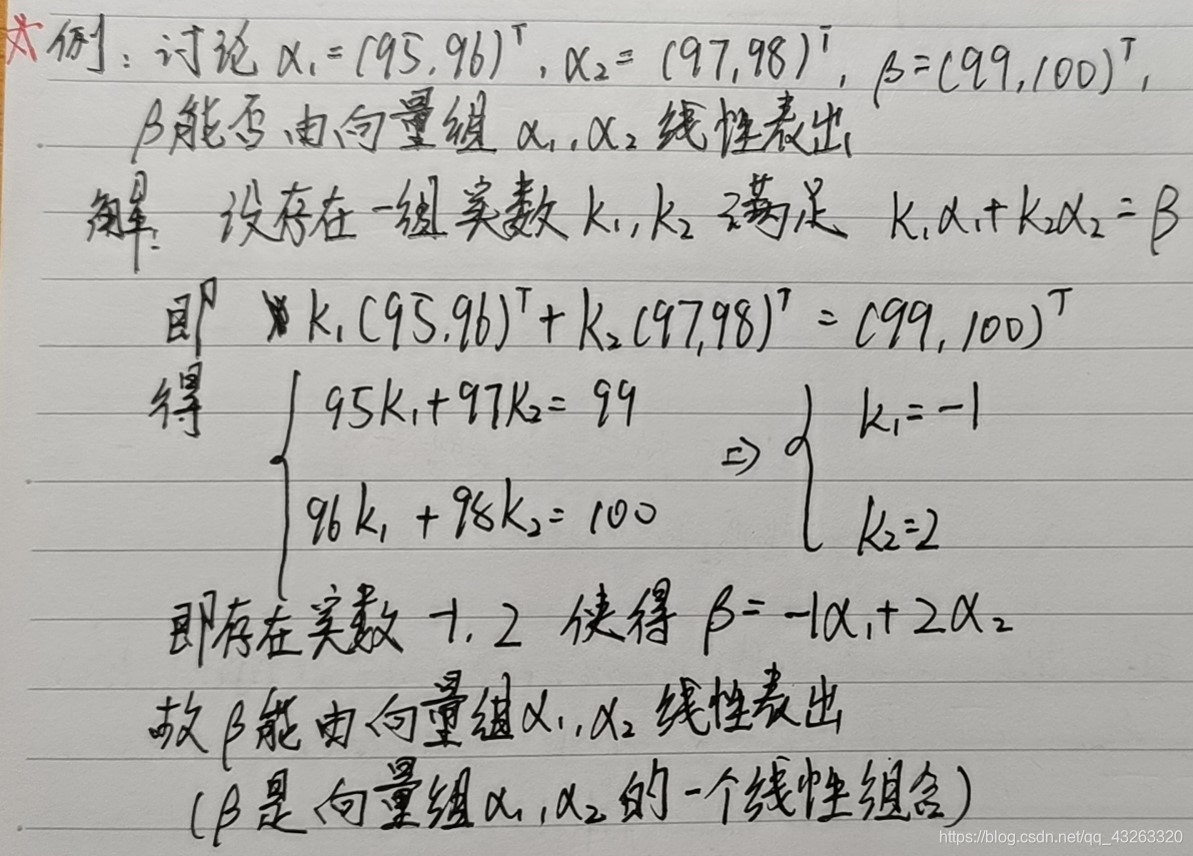 ☆例：讨论 α₁=(95,96)ᵀ, α₂=(97,98)ᵀ, β=(99,100)ᵀ,
β能否由向量组 α₁,α₂ 线性表出
解：设存在一组实数 k₁,k₂ 满足 k₁α₁+k₂α₂=β
即 k₁(95,96)ᵀ+k₂(97,98)ᵀ=(99,100)ᵀ
得 { 95k₁+97k₂=99 ⇒ { k₁=-1
96k₁+98k₂=100 k₂=2
即存在实数 -1,2 使得 β=-1α₁+2α₂
故β能由向量组α₁,α₂线性表出
(β是向量组α₁,α₂的一个线性组合)
https://blog.csdn.net/qq_43263320